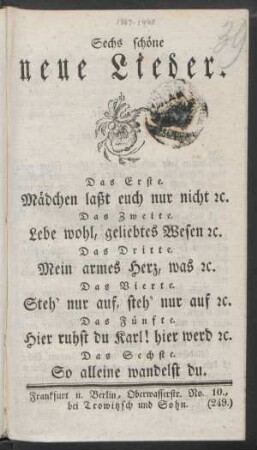 Sechs schöne
neue Lieder.
39
Das Erste.
Mädchen laßt euch nur nicht ꝛc.
Das Zweite.
Lebe wohl, geliebtes Wesen ꝛc.
Das Dritte.
Mein armes Herz, was ꝛc.
Das Vierte.
Steh' nur auf, steh' nur auf ꝛc.
Das Fünfte.
Hier ruhst du Karl! hier werd ꝛc.
Das Sechste.
So alleine wandelst du.
Frankfurt u. Berlin, Oberwasserstr. No. 10.,
bei Trowitzsch und Sohn. (249.)